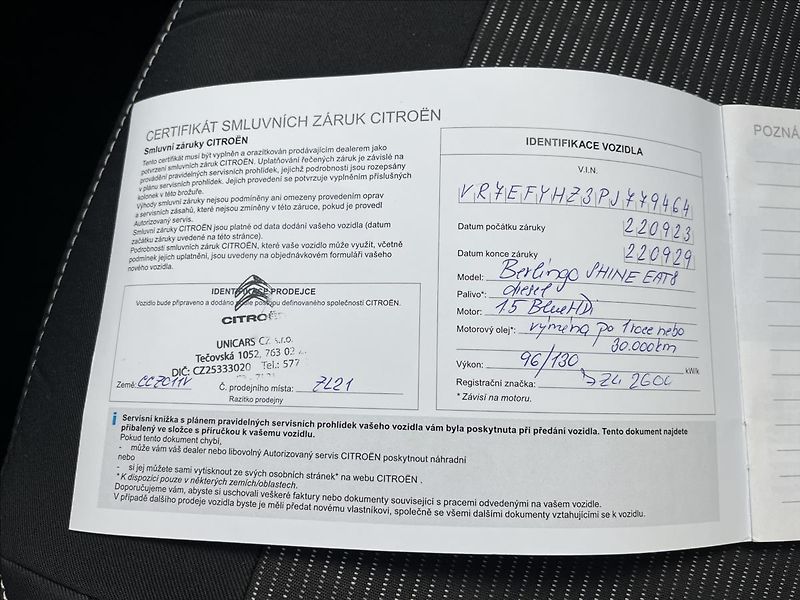 CERTIFIKÁT SMLUVNÍCH ZÁRUK CITROËN
Smluvní záruky CITROËN
Tento certifikát musí být vyplněn a orazítkován prodávajícím dealerem jako
potvrzení smluvních záruk CITROËN. Uplatňování řečených záruk je závislé na
provádění pravidelných servisních prohlídek, jejichž podrobnosti jsou rozepsány
v plánu servisních prohlídek. Jejich provedení se potvrzuje vyplněním příslušných
kolonek v této brožuře.
Výhody smluvní záruky nejsou podmíněny ani omezeny provedením oprav
a servisních zásahů, které nejsou zmíněny v této záruce, pokud je provedl
Autorizovaný servis.
Smluvní záruky CITROËN jsou platné od data dodání vašeho vozidla (datum
začátku záruky uvedené na této stránce).
Podrobnosti smluvních záruk CITROËN, které vaše vozidlo může využít, včetně
podmínek jejich uplatnění, jsou uvedeny na objednávkovém formuláři vašeho
nového vozidla.
IDENTIFIKACE PRODEJCE
Vozidlo bude připraveno a dodáno podle postupu definovaného společností CITROËN.
CITROËN
UNICARS CZ s.r.o.
Tečovská 1052, 763 02
DIČ: CZ25333020 Tel.: 577
Země: CCZ011V Č. prodejního místa: ZL21
Razítko prodejny
IDENTIFIKACE VOZIDLA
V.I.N.
VR7EFYHZ3PJ779464
Datum počátku záruky 220923
Datum konce záruky 220929
Model: Berlingo SHINE EAT8
Palivo*: diesel
Motor: 1.5 BlueHDi
Motorový olej*: výměna po 1 roce nebo
30.000km
Výkon: 96/130 kW/k
Registrační značka:
* Závisí na motoru.
i Servisní knížka s plánem pravidelných servisních prohlídek vašeho vozidla vám byla poskytnuta při předání vozidla. Tento dokument najdete
přibalený ve složce s příručkou k vašemu vozidlu.
Pokud tento dokument chybí,
- může vám váš dealer nebo libovolný Autorizovaný servis CITROËN poskytnout náhradní
nebo
- si jej můžete sami vytisknout ze svých osobních stránek* na webu CITROËN .
* K dispozici pouze v některých zemích/oblastech.
Doporučujeme vám, abyste si uschovali veškeré faktury nebo dokumenty související s pracemi odvedenými na vašem vozidle.
V případě dalšího prodeje vozidla byste je měli předat novému vlastníkovi, společně se všemi dalšími dokumenty vztahujícími se k vozidlu.
POZNÁ